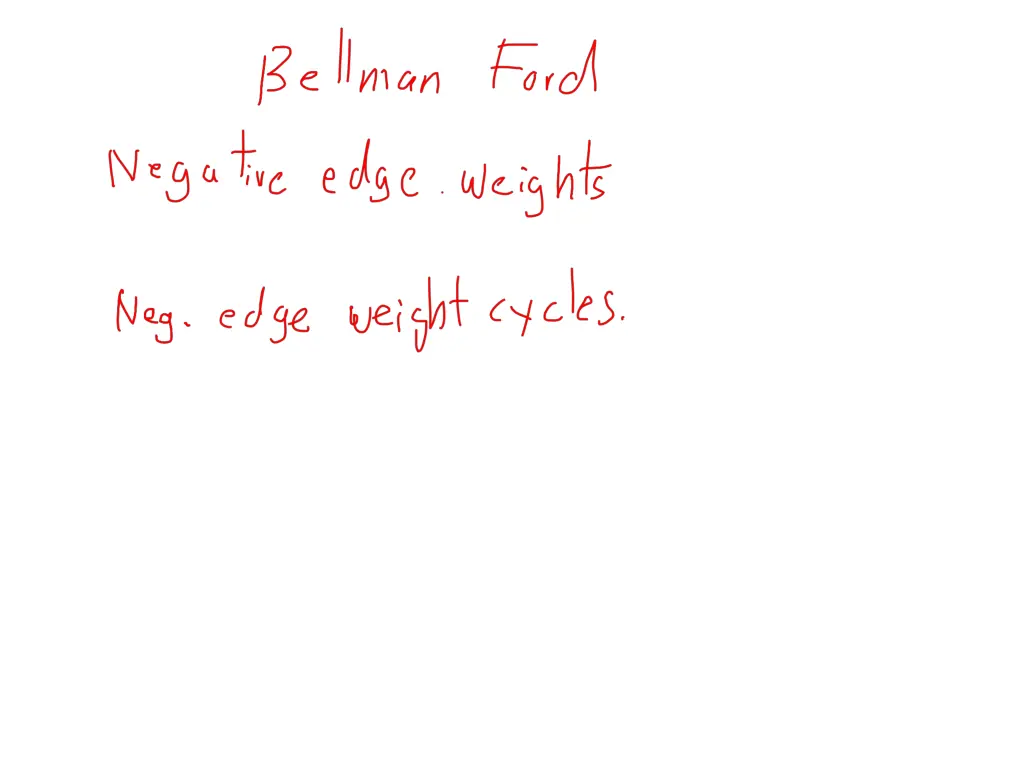 Bellman Ford
Negative edge. weights
Neg. edge weight cycles.